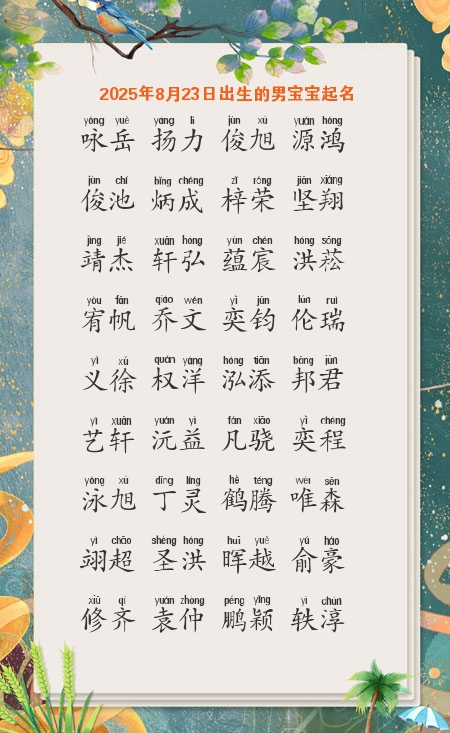 2025年8月23日出生的男宝宝起名
yǒng yuè yáng lì jùn xù yuán hóng
咏岳 扬力 俊旭 源鸿
jùn chí bǐng chéng zǐ róng jiān xiáng
俊池 炳成 梓荣 坚翔
jìng jié xuān hóng yùn chén hóng sōng
靖杰 轩弘 蕴宸 洪菘
yòu fān qiáo wén yì jūn lún ruì
宥帆 乔文 奕钧 伦瑞
yì xú quán yáng hóng tiān bāng jūn
义徐 权洋 泓添 邦君
yì xuān yuán yì fán xiāo yì chéng
艺轩 沅益 凡骁 奕程
yǒng xù dīng líng hè téng wéi sēn
泳旭 丁灵 鹤腾 唯森
yì chāo shèng hóng huī yuè yú háo
翊超 圣洪 晖越 俞豪
xiū qí yuán zhòng péng yǐng yì chún
修齐 袁仲 鹏颖 轶淳